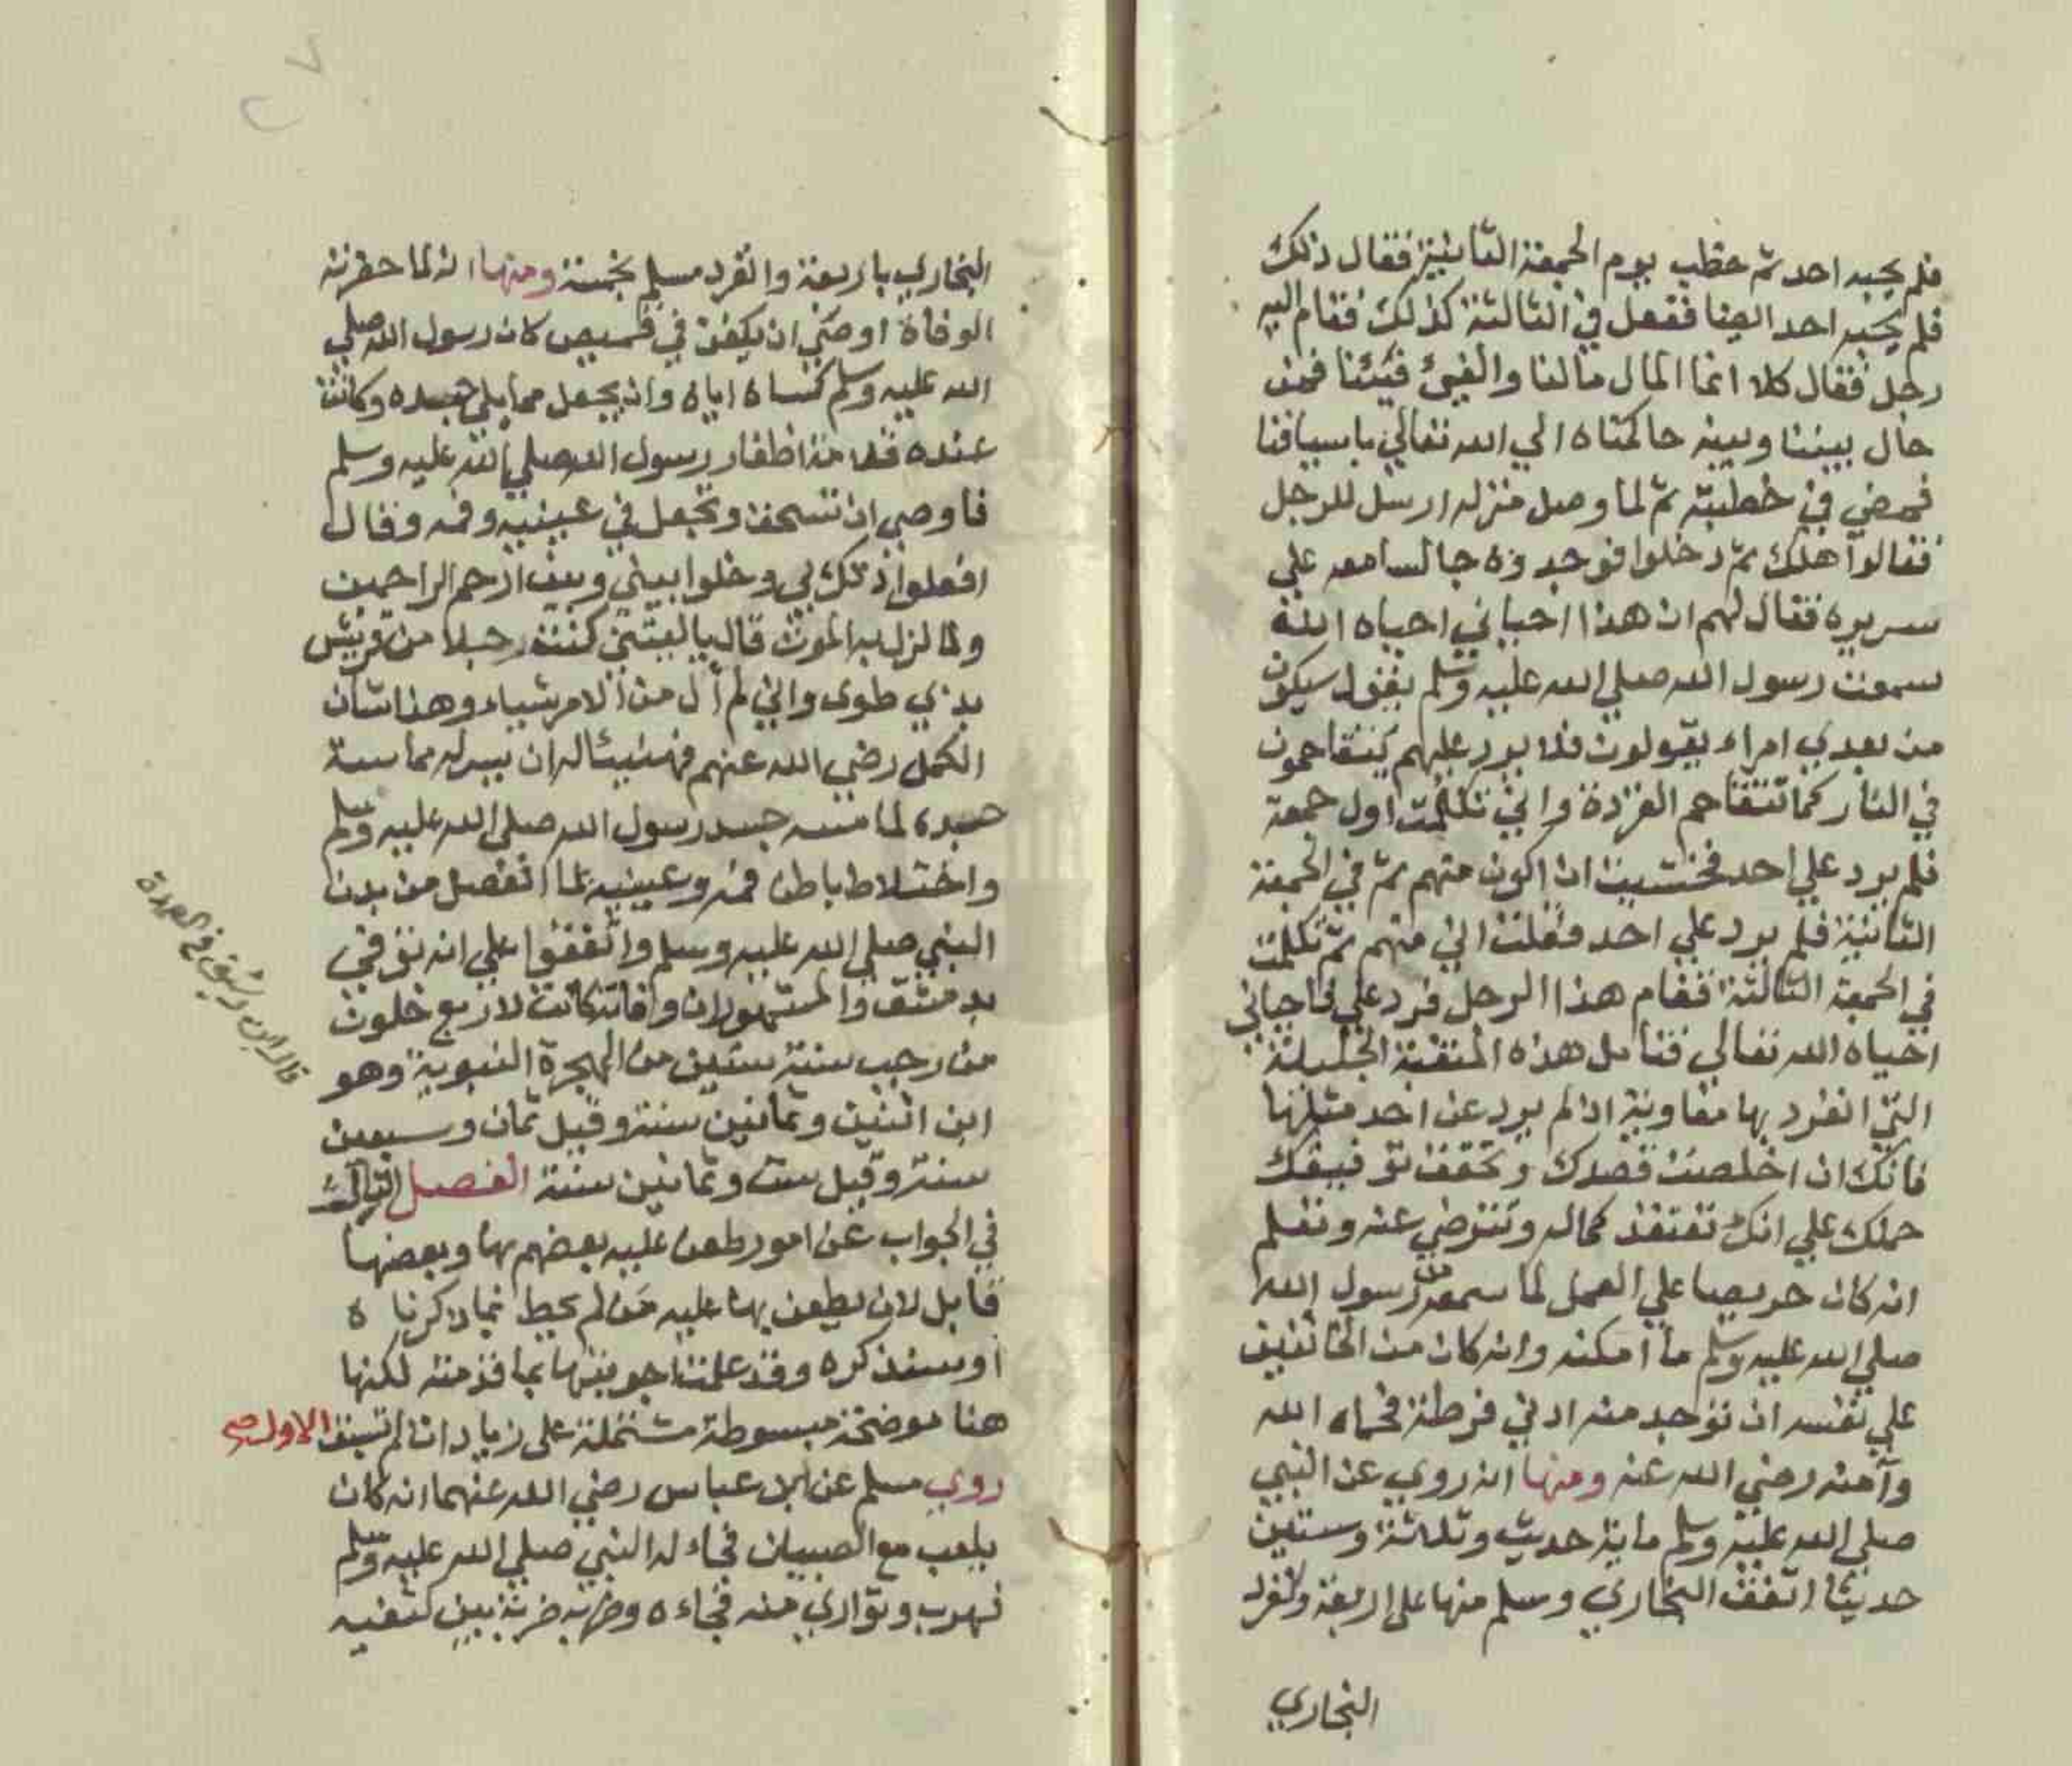 فلم يجبه احد ثم خطب يوم الجمعة الثانية فقال ذلك
فلم يجبه احد ايضا ففعل في الثالثة كذلك فقام اليه
رجل فقال كلا انما المال مالنا والفيئ فيئنا فمن
حال بيننا وبينه حاكمناه الي الله تعالي باسيافنا
فمضي في خطبته ثم لما وصل منزله ارسل للرجل
فقالوا هلك ثم دخلوا فوجدوه جالسا معه علي
سريره فقال لهم ان هذا احياني احياه الله
سمعت رسول الله صلي الله عليه وسلم يقول سيكون
من بعدي امراء يقولون فلا يرد عليهم يتقاحمون
في النار كما تتقاحم القردة واني تكلمت اول جمعة
فلم يرد علي احد فخشيت ان اكون منهم ثم في الجمعة
الثانية فلم يرد علي احد فقلت اني منهم ثم تكلمت
في الجمعة الثالثة فقام هذا الرجل فرد علي فاحياني
احياه الله تعالي فتامل هذه المنقبة الجليلة
التي انفرد بها معاوية اذ لم يرد عن احد مثلها
فانك ان اخلصت قصدك وتحقق توفيقك
حملك علي انك تعتقد كماله وتترضي عنه وتعلم
انه كان حريصا علي العمل لما سمعه من رسول الله
صلي الله عليه وسلم ما امكنه وانه كان من الخائفين
علي نفسه ان توجد منه ادني فرطة فحماه الله
وآمنه رضي الله عنه ومنها انه روي عن النبي
صلي الله عليه وسلم ماية حديث وثلاثة وستين
حديثا اتفق البخاري ومسلم منها علي اربعة وانفرد
البخاري
البخاري باربعة وانفرد مسلم بخمسة ومنها انه لما حضرته
الوفاة اوصي ان يكفن في قميص كان رسول الله صلي
الله عليه وسلم كساه اياه وان يجعل مما يلي جسده وكانت
عنده قلامة اظفار رسول الله صلي الله عليه وسلم
فاوصي ان تسحق وتجعل في عينيه وفمه وقال
افعلوا ذلك لي وخلوا بيني وبين ارحم الراحمين
ولما نزل به الموت قال يا ليتني كنت رجلا من قريش
بذي طوي واني لم أل من الامر شياء وهذا شان
الكمل رضي الله عنهم فهنيئا له ان يسر له مماسة
جسده لما مسه جسد رسول الله صلي الله عليه وسلم
واختلاط باطن فمه وعينيه بما انفصل من بدن
النبي صلي الله عليه وسلم واتفقوا علي انه توفي
بدمشق والمشهور ان وفاته كانت لاربع خلون
من رجب سنة ستين من الهجرة النبوية وهو
ابن اثنين وثمانين سنة وقيل ثمان وسبعين
سنة وقيل ست وثمانين سنة الفصل الثالث
في الجواب عن امور طعن عليه بعضهم بها وبعضها
قابل لان يطعن بها عليه من لم يحط بما ذكرناه
او سنذكره وقد علمت اجوبتها بما قدمته لكنها
هنا موضحة مبسوطة مشتملة علي زيادات لم تسبق الاول صح
روي مسلم عن ابن عباس رضي الله عنهما انه كان
يلعب مع الصبيان فجاء له النبي صلي الله عليه وسلم
فهرب وتواري منه فجاءه وضربه ضربة بين كتفيه
قال ابن رشيق في العمدة